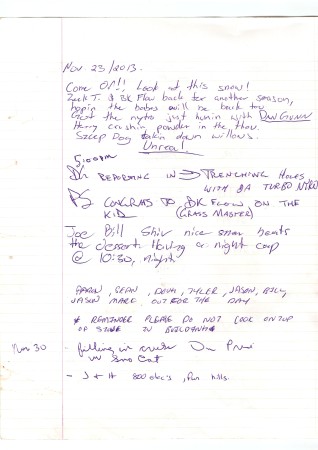 Nov. 23/2013.
Come ON!! Look at this snow!
Zack T. & BK Flow back for another season,
hopin the babes will be back too
Got the nytro just hummin with DAN GUNN
Harry crushin powder in the thou.
Sleep Dog takin down willows.
Unreal
5:00pm
Dr REPORTING IN TRENCHING HOLES
WITH DA TURBO NYTRO
PS CONGRATS TO BK FLOW ON THE
KID (GRASS MASTER)
Joe Bill Shiv nice snow beats
the dessert. Having a night cap
@ 10:30, night
AARON, SEAN, DEVIN, TYLER, JASON, BILLY,
JASON MAKE OUT FOR THE DAY
* REMINDER PLEASE DO NOT COOK ON TOP
OF STOVE IN BUILDING
Nov 30 - filling in creek
w Sno Cat
- J + H 800 etec's, fun hills.